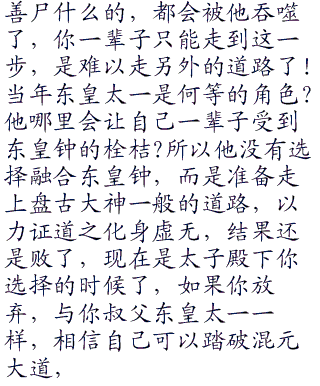 善尸什么的，都会被他吞噬
了，你一辈子只能走到这一
步，是难以走另外的道路了！
当年东皇太一是何等的角色？
他哪里会让自己一辈子受到
东皇钟的栓桔？所以他没有选
择融合东皇钟，而是准备走
上盘古大神一般的道路，以
力证道之化身虚无，结果还
是败了，现在是太子殿下你
选择的时候了，如果你放
弃，与你叔父东皇太一一
样，相信自己可以踏破混元
大道，